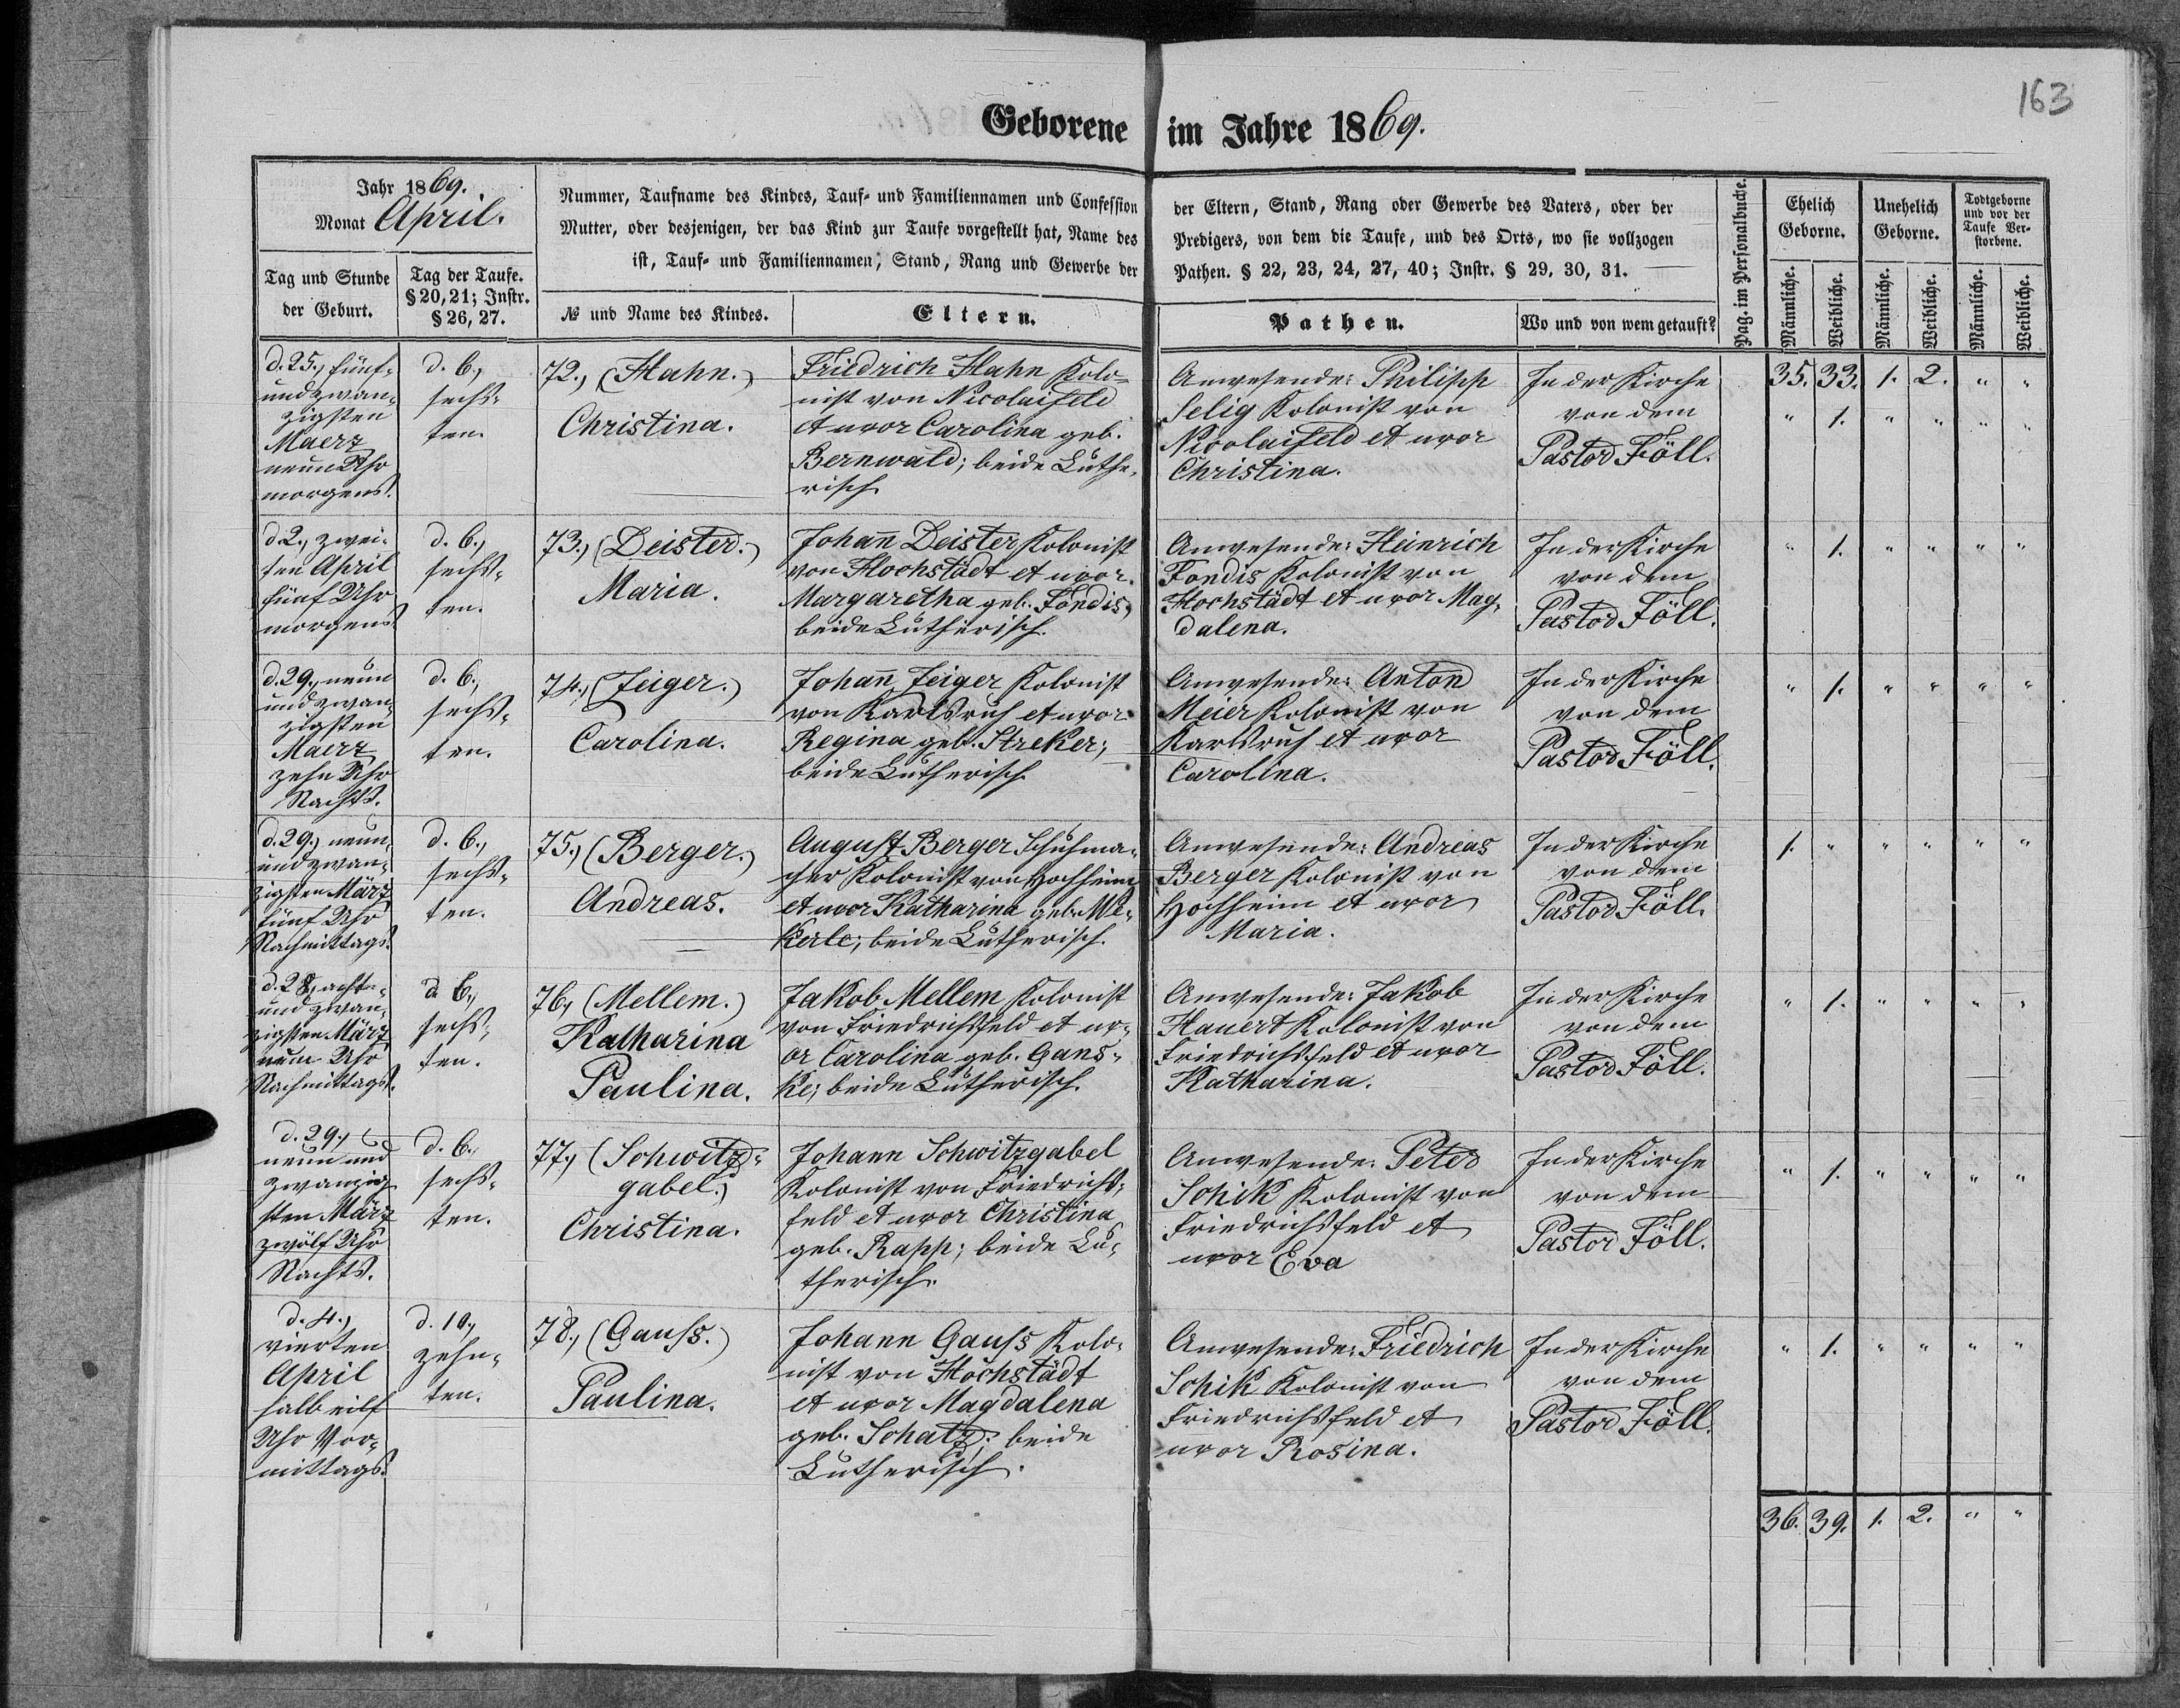 163
Geborene im Jahre 1869.
Jahr 1869.
Monat April.
Nummer, Taufname des Kindes, Tauf- und Familiennamen und Confession
Mutter, oder desjenigen, der das Kind zur Taufe vorgestellt hat, Name des
ist, Tauf- und Familiennamen, Stand, Rang und Gewerbe der
der Eltern, Stand, Rang oder Gewerbe des Vaters, oder der
Predigers, von dem die Taufe, und des Orts, wo sie vollzogen
Pathen. § 22, 23, 24, 27, 40; Instr. § 29, 30, 31.
Pag. im Personalbuche.
Ehelich
Geborne.
Unehelich
Geborne.
Todtgeborne
und vor der
Taufe Ver-
storbene.
Tag und Stunde
der Geburt.
Tag der Taufe.
§ 20, 21; Instr.
§ 26, 27.
№ und Name des Kindes.
Eltern.
Pathen.
Wo und von wem getauft?
Männliche.
Weibliche.
Männliche.
Weibliche.
Männliche.
Weibliche.
d. 25., fünf-
und zwan-
zigsten
Maerz
neun Uhr
morgens.
d. 6.,
sechs-
ten.
72., (Hahn.)
Christina.
Friedrich Hahn Kolo-
nist von Nicolaifeld
et uxor Carolina geb.
Bernwald; beide Luthe-
risch
Anwesende: Philipp
Selig Kolonist von
Nicolaifeld et uxor
Christina.
In der Kirche
von dem
Pastor Föll.
35. 33. 1. 2. " "
" 1. " " " "
d. 2., zwei-
ten April
fünf Uhr
morgens.
d. 6.,
sechs-
ten.
73., (Deister.)
Maria.
Johan̄ Deister Kolonist
von Hochstädt et uxor
Margaretha geb. Fondis,
beide Lutherisch.
Anwesende: Heinrich
Fondis Kolonist von
Hochstädt et uxor Mag-
dalena.
In der Kirche
von dem
Pastor Föll.
" 1. " " " "
d. 29., neun
und zwan-
zigsten
Maerz
zehn Uhr
Nachts.
d. 6.,
sechs-
ten.
74., (Zeiger.)
Carolina.
Johan̄ Zeiger Kolonist
von Karlsruh et uxor
Regina geb. Streker;
beide Lutherisch
Anwesende: Anton
Meier Kolonist von
Karlsruh et uxor
Carolina.
In der Kirche
von dem
Pastor Föll.
" 1. " " " "
d. 29., neun
und zwan-
zigsten März
fünf Uhr
Nachmittags.
d. 6.,
sechs-
ten.
75., (Berger.)
Andreas.
August Berger Schuhma-
cher Kolonist von Hochheim
et uxor Katharina geb. We-
kerle; beide Lutherisch.
Anwesende: Andreas
Berger Kolonist von
Hochheim et uxor
Maria.
In der Kirche
von dem
Pastor Föll.
1. " " " " "
d. 28., acht-
und zwan-
zigsten März
neun Uhr
Nachmittags.
d. 6.,
sechs-
ten.
76., (Mellem.)
Katharina
Paulina.
Jakob Mellem Kolonist
von Friedrichsfeld et ux-
or Carolina geb. Gans-
ke; beide Lutherisch.
Anwesende: Jakob
Hauert Kolonist von
Friedrichsfeld et uxor
Katharina.
In der Kirche
von dem
Pastor Föll.
" 1. " " " "
d. 29.,
neun und
zwanzig
sten März
zwölf Uhr
Nachts.
d. 6.,
sechs-
ten.
77., (Schwitz-
gabel.)
Christina.
Johann Schwitzgabel
Kolonist von Friedrichs-
feld et uxor Christina
geb. Rapp; beide Lu-
therisch.
Anwesende: Peter
Schik Kolonist von
Friedrichsfeld et
uxor Eva
In der Kirche
von dem
Pastor Föll.
" 1. " " " "
d. 4.,
vierten
April
halb eilf
Uhr Vor-
mittags.
d. 10.,
zehn-
ten.
78., (Gauss.)
Paulina.
Johann Gauss Kolo-
nist von Hochstädt
et uxor Magdalena
geb. Schatz; beide
Lutherisch.
Anwesende: Friedrich
Schik Kolonist von
Friedrichsfeld et
uxor Rosina.
In der Kirche
von dem
Pastor Föll.
" 1. " " " "
36. 39. 1. 2. " "